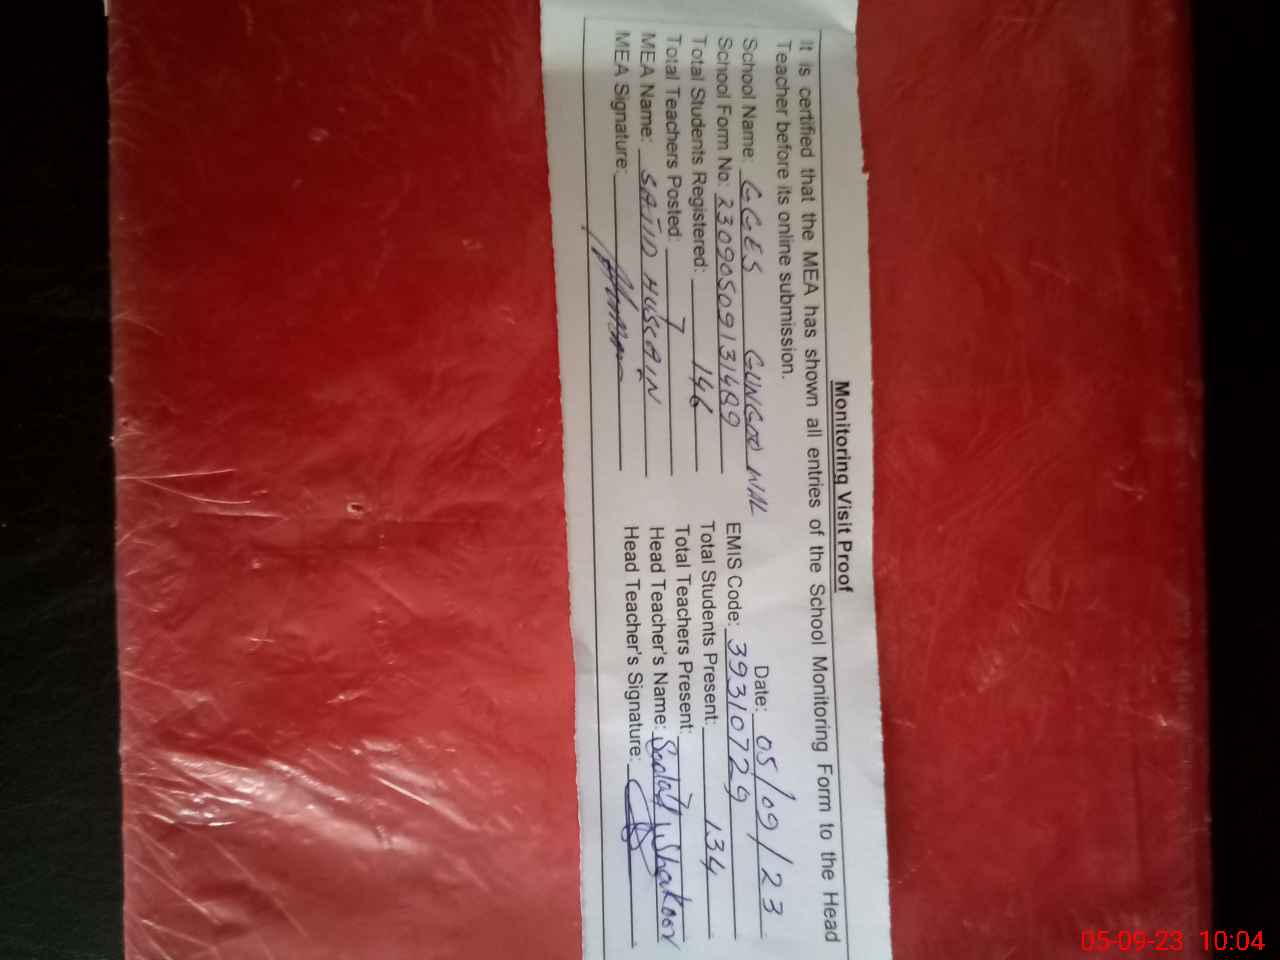 Monitoring Visit Proof
It is certified that the MEA has shown all entries of the School Monitoring Form to the Head
Teacher before its online submission.
School Name: GGES GUNGOO WAL Date: 05/09/23
School Form No: 23090509131489 EMIS Code: 39310729
Total Students Registered: 146 Total Students Present: 134
Total Teachers Posted: 7 Total Teachers Present: 7
MEA Name: SAJID HUSSAIN Head Teacher's Name: Shakoor
MEA Signature: Head Teacher's Signature:
05-09-23 10:04